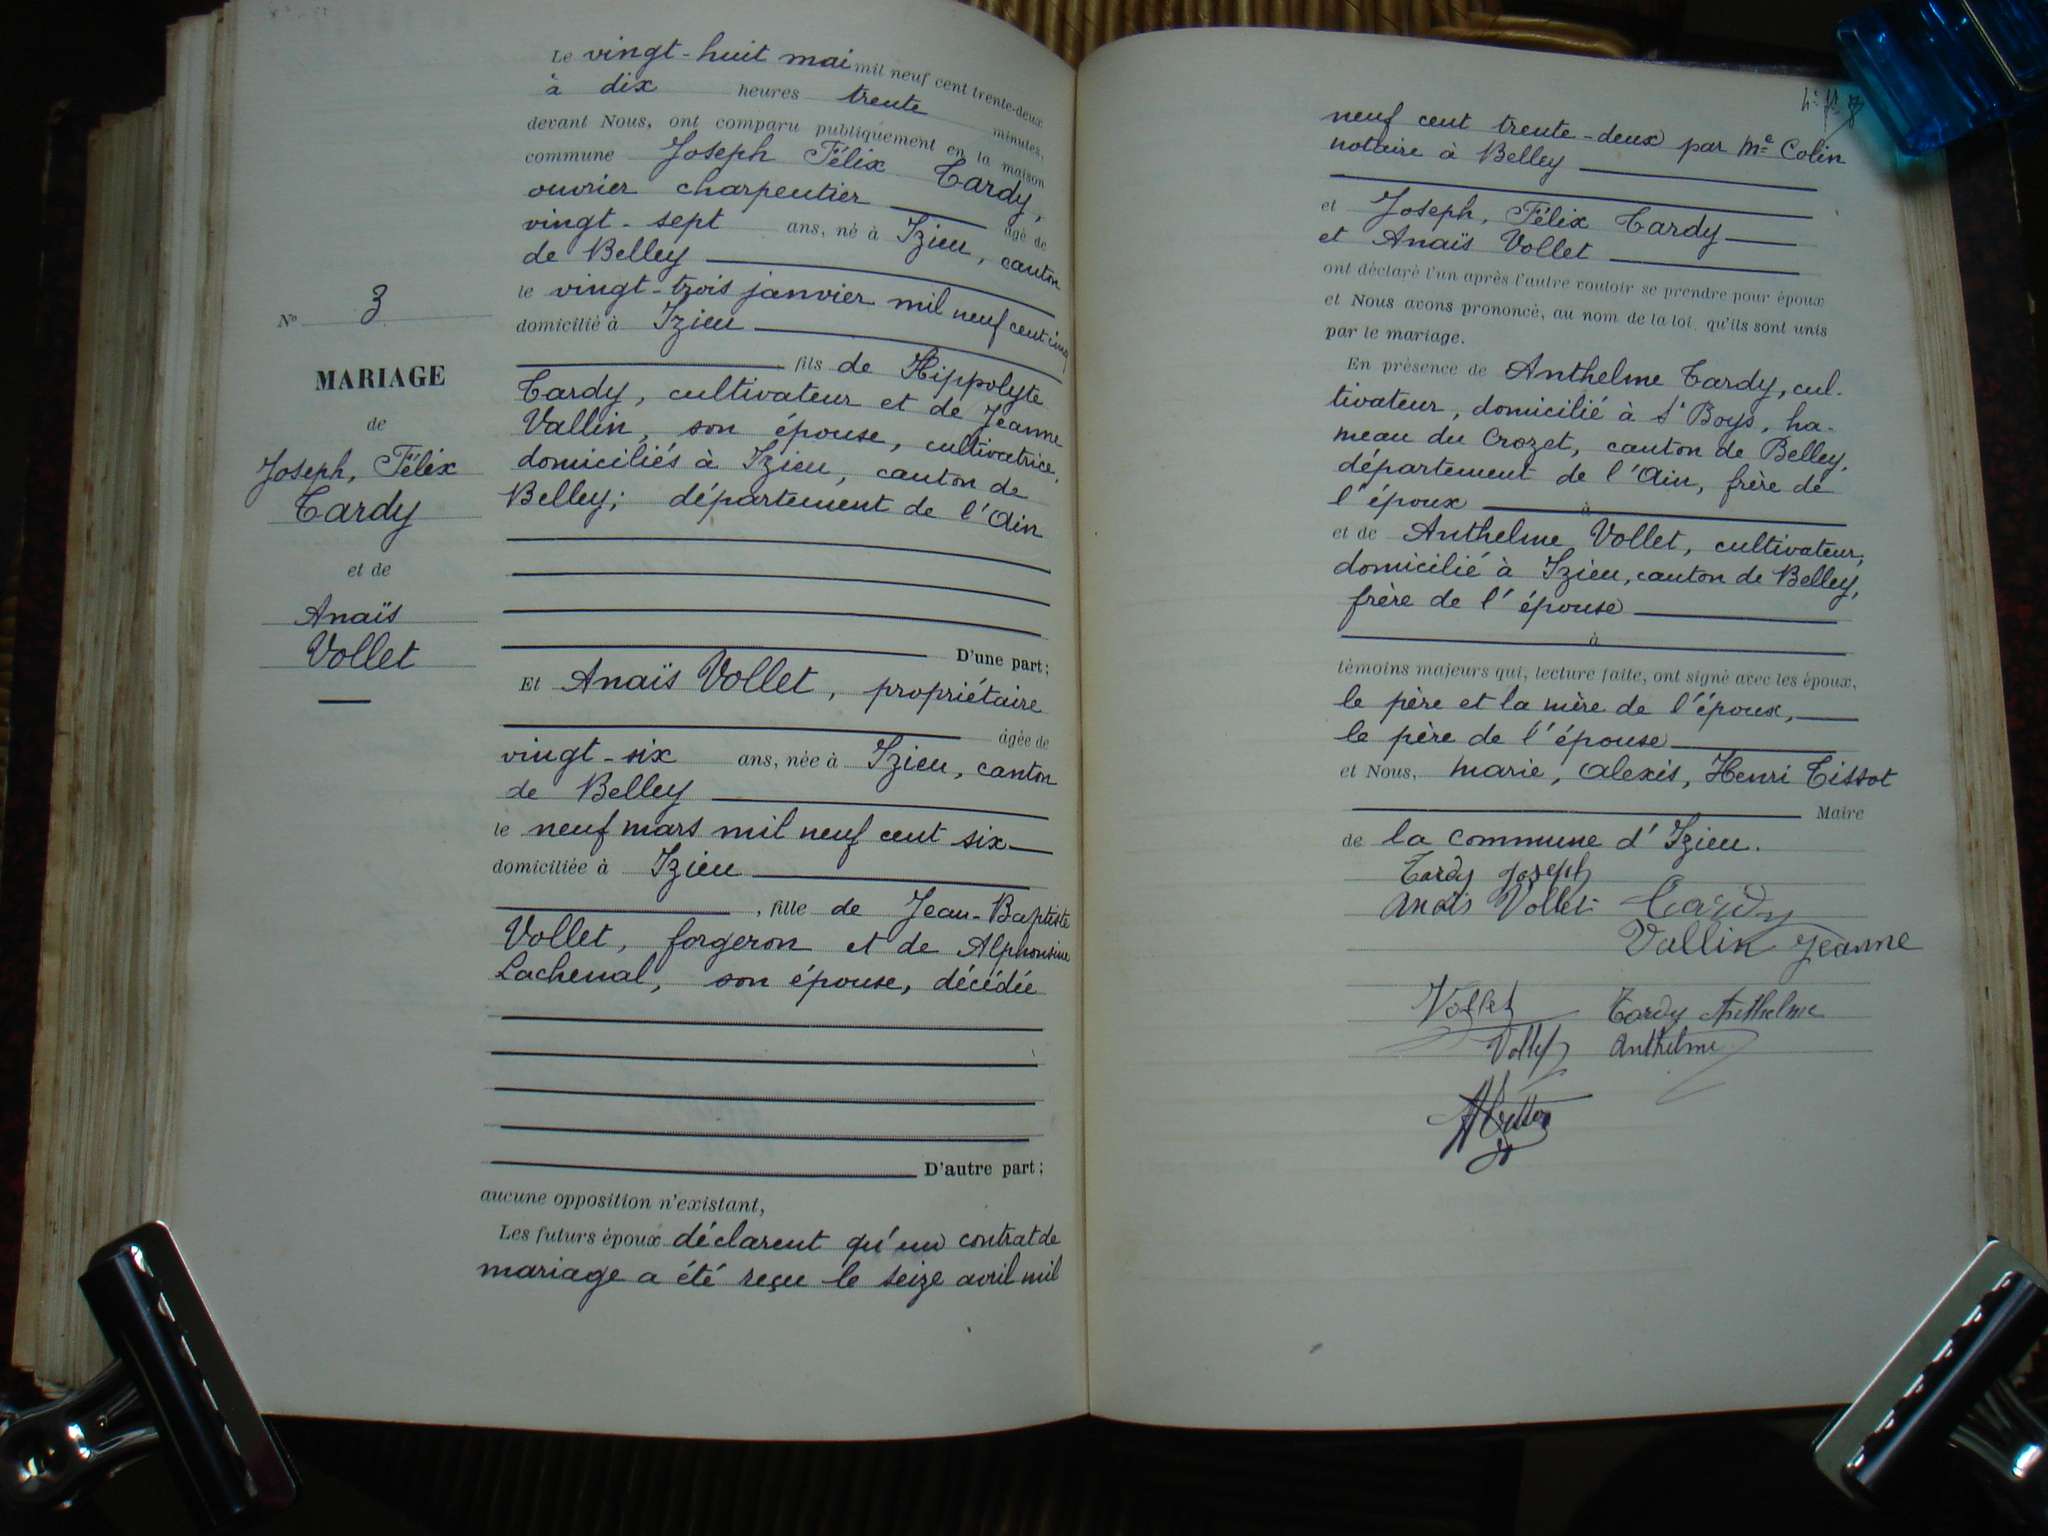 Le vingt-huit mai mil neuf cent trente-deux
à dix heures trente minutes,
devant Nous, ont comparu publiquement en la maison
commune Joseph Félix Tardy,
ouvrier charpentier âgé de
vingt-sept ans, né à Izieu, canton
de Belley
le vingt-trois janvier mil neuf cent cinq
domicilié à Izieu
fils de Hippolyte
Tardy, cultivateur et de Jeanne
Vallin, son épouse, cultivatrice,
domiciliés à Izieu, canton de
Belley; département de l'Ain
D'une part;
Nº 3
MARIAGE
de
Joseph, Félix
Tardy
et de
Anaïs
Vollet
Et Anaïs Vollet, propriétaire
âgée de
vingt-six ans, née à Izieu, canton
de Belley
le neuf mars mil neuf cent six
domiciliée à Izieu
, fille de Jean-Baptiste
Vollet, forgeron et de Alphonsine
Lachenal, son épouse, décédée
D'autre part;
aucune opposition n'existant,
Les futurs époux déclarent qu'un contrat de
mariage a été reçu le seize avril mil
neuf cent trente-deux par Me Colin
notaire à Belley
et Joseph, Félix Tardy
et Anaïs Vollet
ont déclaré l'un après l'autre vouloir se prendre pour époux
et Nous avons prononcé, au nom de la loi, qu'ils sont unis
par le mariage.
En présence de Anthelme Tardy, cul-
tivateur, domicilié à St Boys, ha-
meau du Crozet, canton de Belley,
département de l'Ain, frère de
l'époux
à
et de Anthelme Vollet, cultivateur,
domicilié à Izieu, canton de Belley,
frère de l'épouse
à
témoins majeurs qui, lecture faite, ont signé avec les époux,
le père et la mère de l'époux,
le père de l'épouse
et Nous, Marie, Alexis, Henri Tissot
Maire
de la commune d'Izieu.
Tardy Joseph
Anaïs Vollet Tardy
Vallin Jeanne
Vollet Tardy Anthelme
Vollet Anthelme